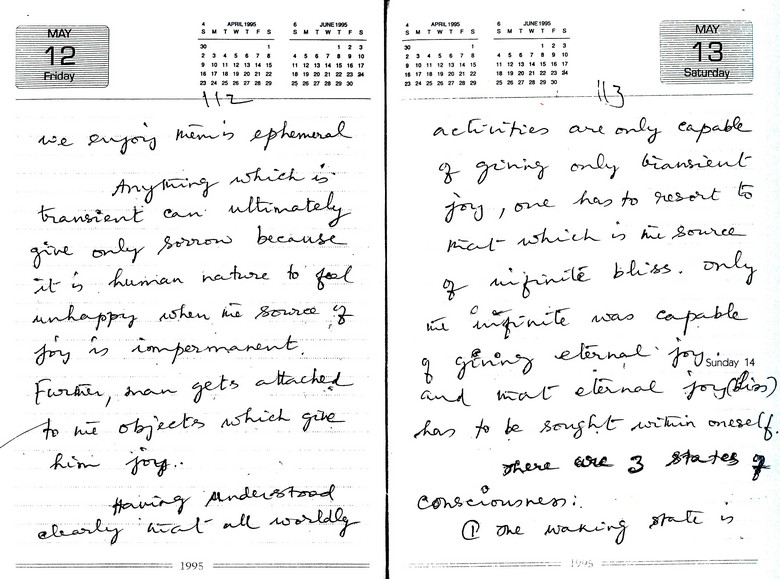 MAY
12
Friday
4 APRIL 1995
S M T W T F S
30 1
2 3 4 5 6 7 8
9 10 11 12 13 14 15
16 17 18 19 20 21 22
23 24 25 26 27 28 29
6 JUNE 1995
S M T W T F S
1 2 3
4 5 6 7 8 9 10
11 12 13 14 15 16 17
18 19 20 21 22 23 24
25 26 27 28 29 30
112
we enjoy them is ephemeral
Anything which is
transient can ultimately
give only sorrow because
it is human nature to feel
unhappy when the source of
joy is impermanent.
Further, man gets attached
to the objects which give
him joy..
Having understood
clearly that all worldly
1995
4 APRIL 1995
S M T W T F S
30 1
2 3 4 5 6 7 8
9 10 11 12 13 14 15
16 17 18 19 20 21 22
23 24 25 26 27 28 29
6 JUNE 1995
S M T W T F S
1 2 3
4 5 6 7 8 9 10
11 12 13 14 15 16 17
18 19 20 21 22 23 24
25 26 27 28 29 30
MAY
13
Saturday
113
activities are only capable
of giving only transient
joy, one has to resort to
that which is the source
of infinite bliss. only
the infinite was capable
of giving eternal joy
Sunday 14
and that eternal joy (bliss)
has to be sought within oneself.
There are 3 states of
consciousness:
① The waking state is
1995